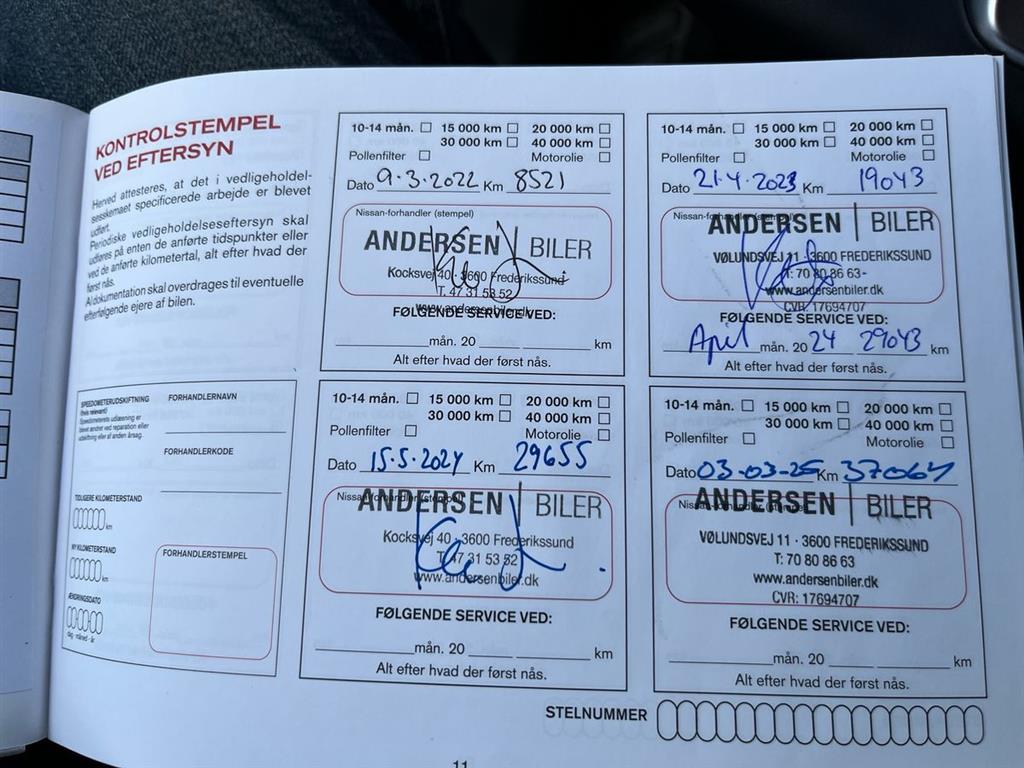 KONTROLSTEMPEL
VED EFTERSYN
Herved attesteres, at det i vedligeholdel-
sesskemaet specificerede arbejde er blevet
udført.
Periodiske vedligeholdelseseftersyn skal
udføres på enten de anførte tidspunkter eller
ved de anførte kilometertal, alt efter hvad der
først nås.
Al dokumentation skal overdrages til eventuelle
efterfølgende ejere af bilen.
10-14 mån. 15 000 km 20 000 km
30 000 km 40 000 km
Pollenfilter Motorolie
Dato 9.3.2022 Km 8521
Nissan-forhandler (stempel)
ANDERSEN | BILER
Kocksvej 40 · 3600 Frederikssund
T. 47 31 53 52
www.andersenbiler.dk
FØLGENDE SERVICE VED:
mån. 20 km
Alt efter hvad der først nås.
10-14 mån. 15 000 km 20 000 km
30 000 km 40 000 km
Pollenfilter Motorolie
Dato 21.4.2023 Km 19043
Nissan-forhandler (stempel)
ANDERSEN | BILER
VØLUNDSVEJ 11 · 3600 FREDERIKSSUND
T: 70 80 86 63
www.andersenbiler.dk
CVR: 17694707
FØLGENDE SERVICE VED:
April mån. 20 24 29043 km
Alt efter hvad der først nås.
SPEEDOMETERUDSKIFTNING
(hvis relevant)
Speedometerets udlæsning er
blevet ændret ved reparation eller
udskiftning eller af anden årsag.
FORHANDLERNAVN
FORHANDLERKODE
TIDLIGERE KILOMETERSTAND
km
NY KILOMETERSTAND
km
ÆNDRINGSDATO
dag - måned - år
FORHANDLERSTEMPEL
10-14 mån. 15 000 km 20 000 km
30 000 km 40 000 km
Pollenfilter Motorolie
Dato 15.5.2024 Km 29655
Nissan-forhandler (stempel)
ANDERSEN | BILER
Kocksvej 40 · 3600 Frederikssund
T. 47 31 53 52
www.andersenbiler.dk
FØLGENDE SERVICE VED:
mån. 20 km
Alt efter hvad der først nås.
10-14 mån. 15 000 km 20 000 km
30 000 km 40 000 km
Pollenfilter Motorolie
Dato 03-03-25 Km 37064
Nissan-forhandler (stempel)
ANDERSEN | BILER
VØLUNDSVEJ 11 · 3600 FREDERIKSSUND
T: 70 80 86 63
www.andersenbiler.dk
CVR: 17694707
FØLGENDE SERVICE VED:
mån. 20 km
Alt efter hvad der først nås.
STELNUMMER
11